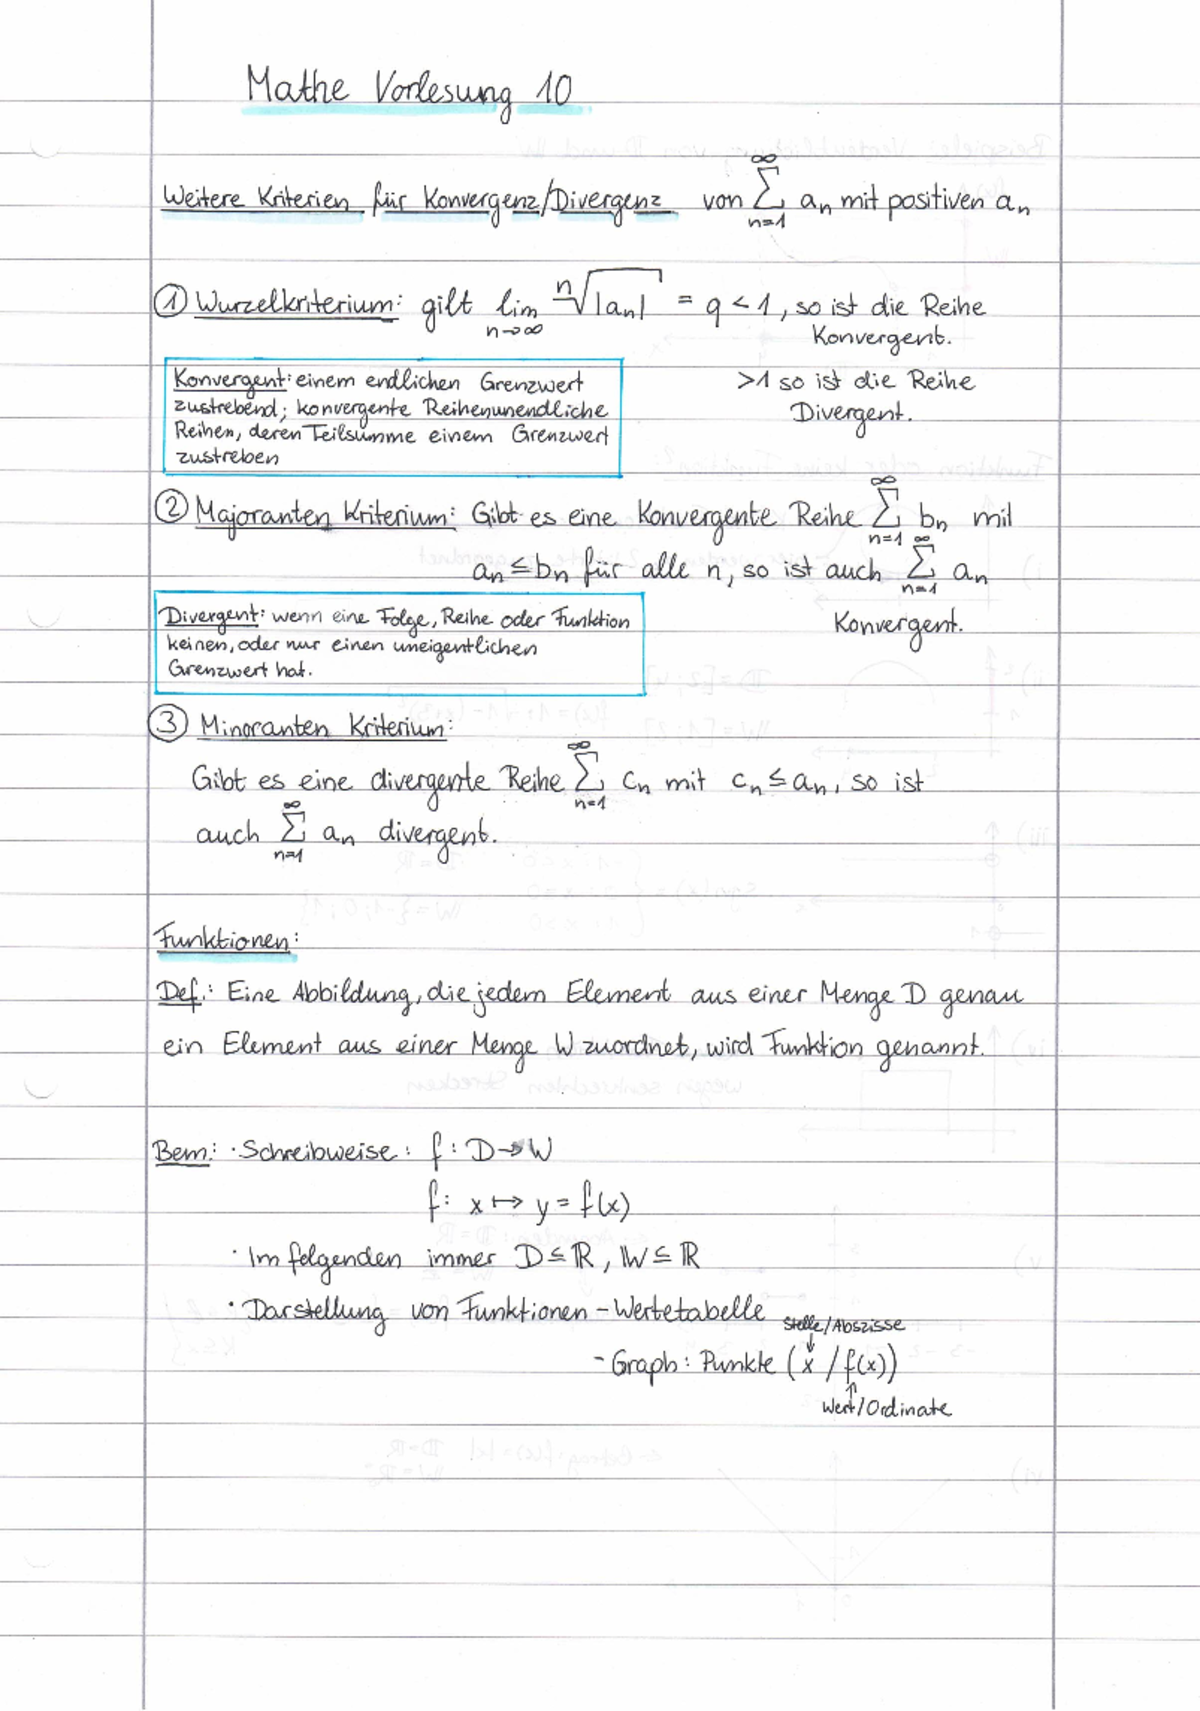 Mathe Vorlesung 10
Weitere Kriterien für Konvergenz/Divergenz von ∞∑n=1 an mit positiven an
① Wurzelkriterium: gilt lim n→∞ n√|an| = q < 1, so ist die Reihe
Konvergent.
>1 so ist die Reihe
Divergent.
Konvergent: einem endlichen Grenzwert
zustrebend; konvergente Reihenunendliche
Reihen, deren Teilsumme einem Grenzwert
zustreben
② Majoranten Kriterium: Gibt es eine Konvergente Reihe ∞∑n=1 bn mit
an ≤ bn für alle n, so ist auch ∞∑n=1 an
Konvergent.
Divergent: wenn eine Folge, Reihe oder Funktion
keinen, oder nur einen uneigentlichen
Grenzwert hat.
③ Minoranten Kriterium:
Gibt es eine divergente Reihe ∞∑n=1 cn mit cn ≤ an, so ist
auch ∞∑n=1 an divergent.
Funktionen:
Def.: Eine Abbildung, die jedem Element aus einer Menge D genau
ein Element aus einer Menge W zuordnet, wird Funktion genannt.
Bem: · Schreibweise: f: D → W
f: x ↦ y = f(x)
· Im folgenden immer D ⊆ ℝ, W ⊆ ℝ
· Darstellung von Funktionen - Wertetabelle
Stelle/Abszisse
↓
- Graph: Punkte (x / f(x))
↑
Wert/Ordinate